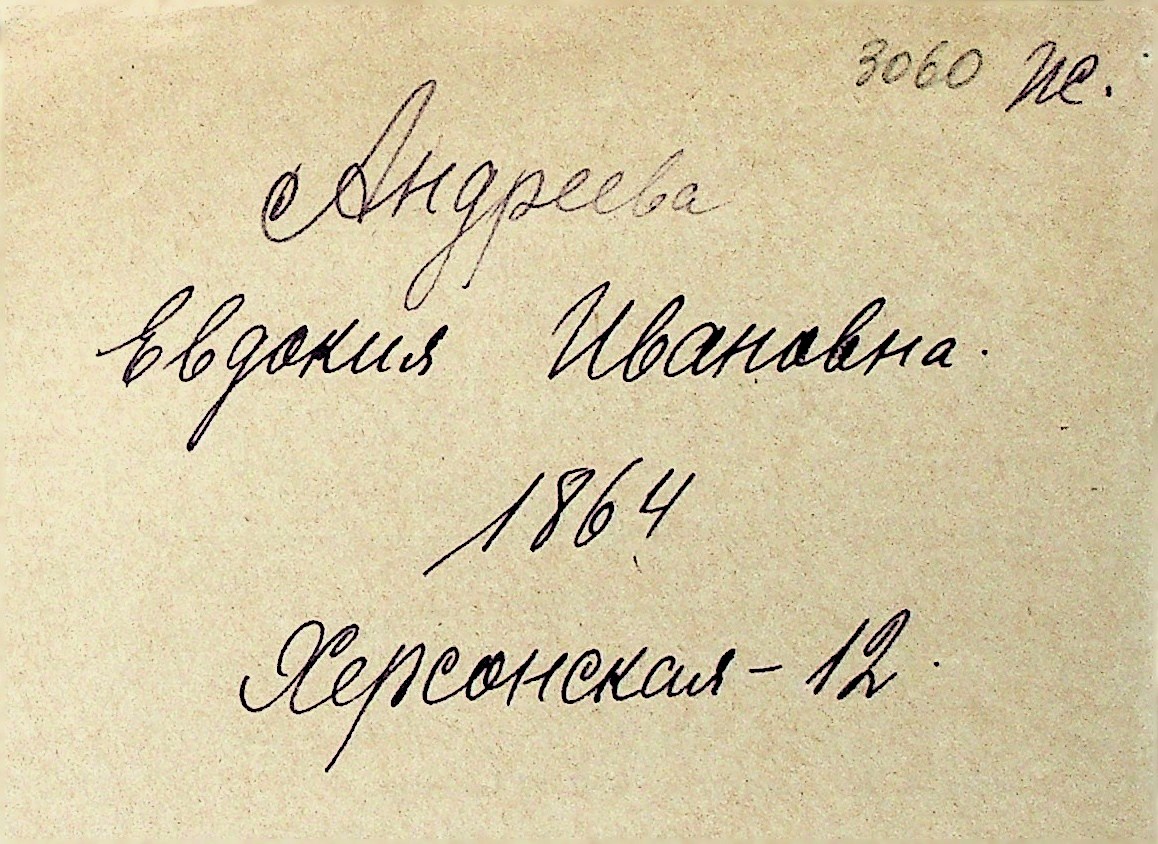 3060 Ис.
Андреева
Евдокия Ивановна.
1864
Херсонская - 12.